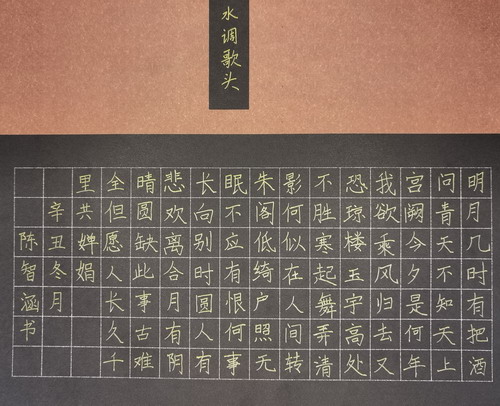 水调歌头
明月几时有把酒
问青天不知天上
宫阙今夕是何年
我欲乘风归去又
恐琼楼玉宇高处
不胜寒起舞弄清
影何似在人间转
朱阁低绮户照无
眠不应有恨何事
长向别时圆人有
悲欢离合月有阴
晴圆缺此事古难
全但愿人长久千
里共婵娟
辛丑冬月
陈智涵书